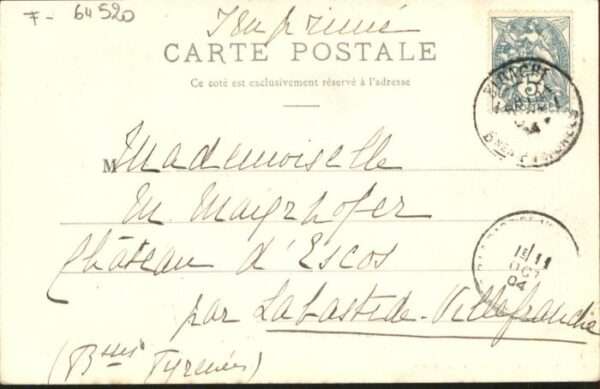 F- 64520
Imprimé
CARTE POSTALE
Ce côté est exclusivement réservé à l'adresse
5
Mademoiselle
Em Mayrhofer
Château d'Escos
par Labastide-Villefranche
(Bses Pyrénées)
11
OCT
04